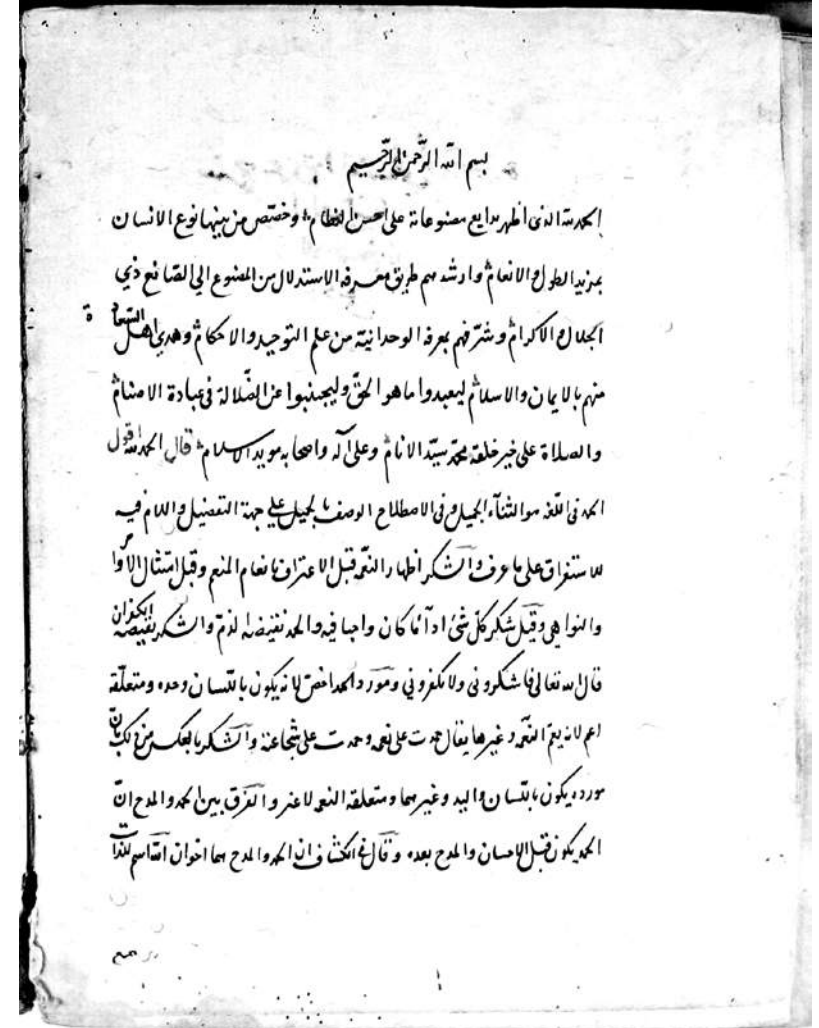 بسم الله الرحمن الرحيم
الحمد لله الذي اظهر بدايع مصنوعاته على احسن النظام وخصص من بينها نوع الانسان
بمزيد الطول والانعام وارشدهم طريق معرفة الاستدلال من المصنوع الي الصانع ذي
الجلال والاكرام وشرفهم بمعرفة الوحدانية من علم التوحيد والاحكام وهدى اهل السعادة
منهم بالايمان والاسلام ليعبدوا ما هو الحق وليجنبوا عن الضلالة في عبادة الاصنام
والصلاة على خير خلقه محمد سيد الانام وعلى آله واصحابه مويد الاسلام قال الحمد لله اقول
الحمد في اللغة هو الثناء الجميل وفي الاصطلاح الوصف بالجميل علي جهة التفضيل واللام فيه
للاستغراق على ما عرف والشكر اظهار النعمة قبل الاعتراف بانعام المنعم وقيل امتثال الاوامر
والنواهي وقيل شكر كل شئ اداء ما كان واجبا فيه والحمد نقيضه الذم والشكر نقيضه الكفران
قال الله تعالى فاشكروني ولا تكفروني ومورد الحمد اخص لانه يكون باللسان وحده ومتعلقه
اعم لانه يعم النعمة وغيرها يقال حمدت على نعمه وحمدت على شجاعته والشكر بالعكس من ذلك بان
مورده يكون باللسان واليد وغيرهما ومتعلقه النعمة لا غير والفرق بين الحمد والمدح ان
الحمد يكون قبل الاحسان والمدح بعده وقال في الكشاف ان الحمد والمدح هما اخوان الله اسم للذات